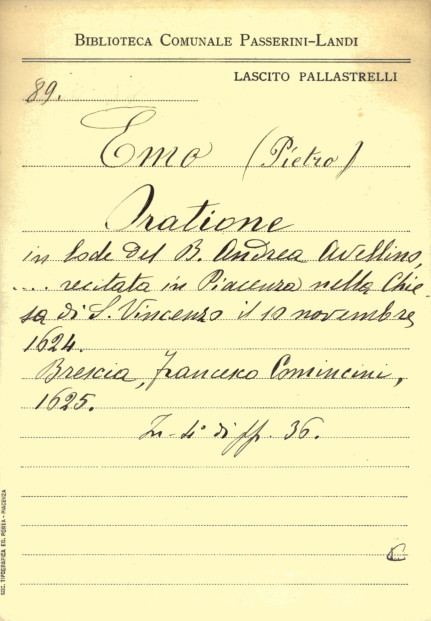 BIBLIOTECA COMUNALE PASSERINI-LANDI
LASCITO PALLASTRELLI
89.
Emo (Pietro)
Oratione
in lode del B. Andrea Avellino,
... recitata in Piacenza nella Chie-
sa di S. Vincenzo il 10 novembre
1624.
Brescia, Francesco Comincini,
1625.
In-4° di ff. 36.
C
SOC. TIPOGRAFICA ED. PORTA - PIACENZA